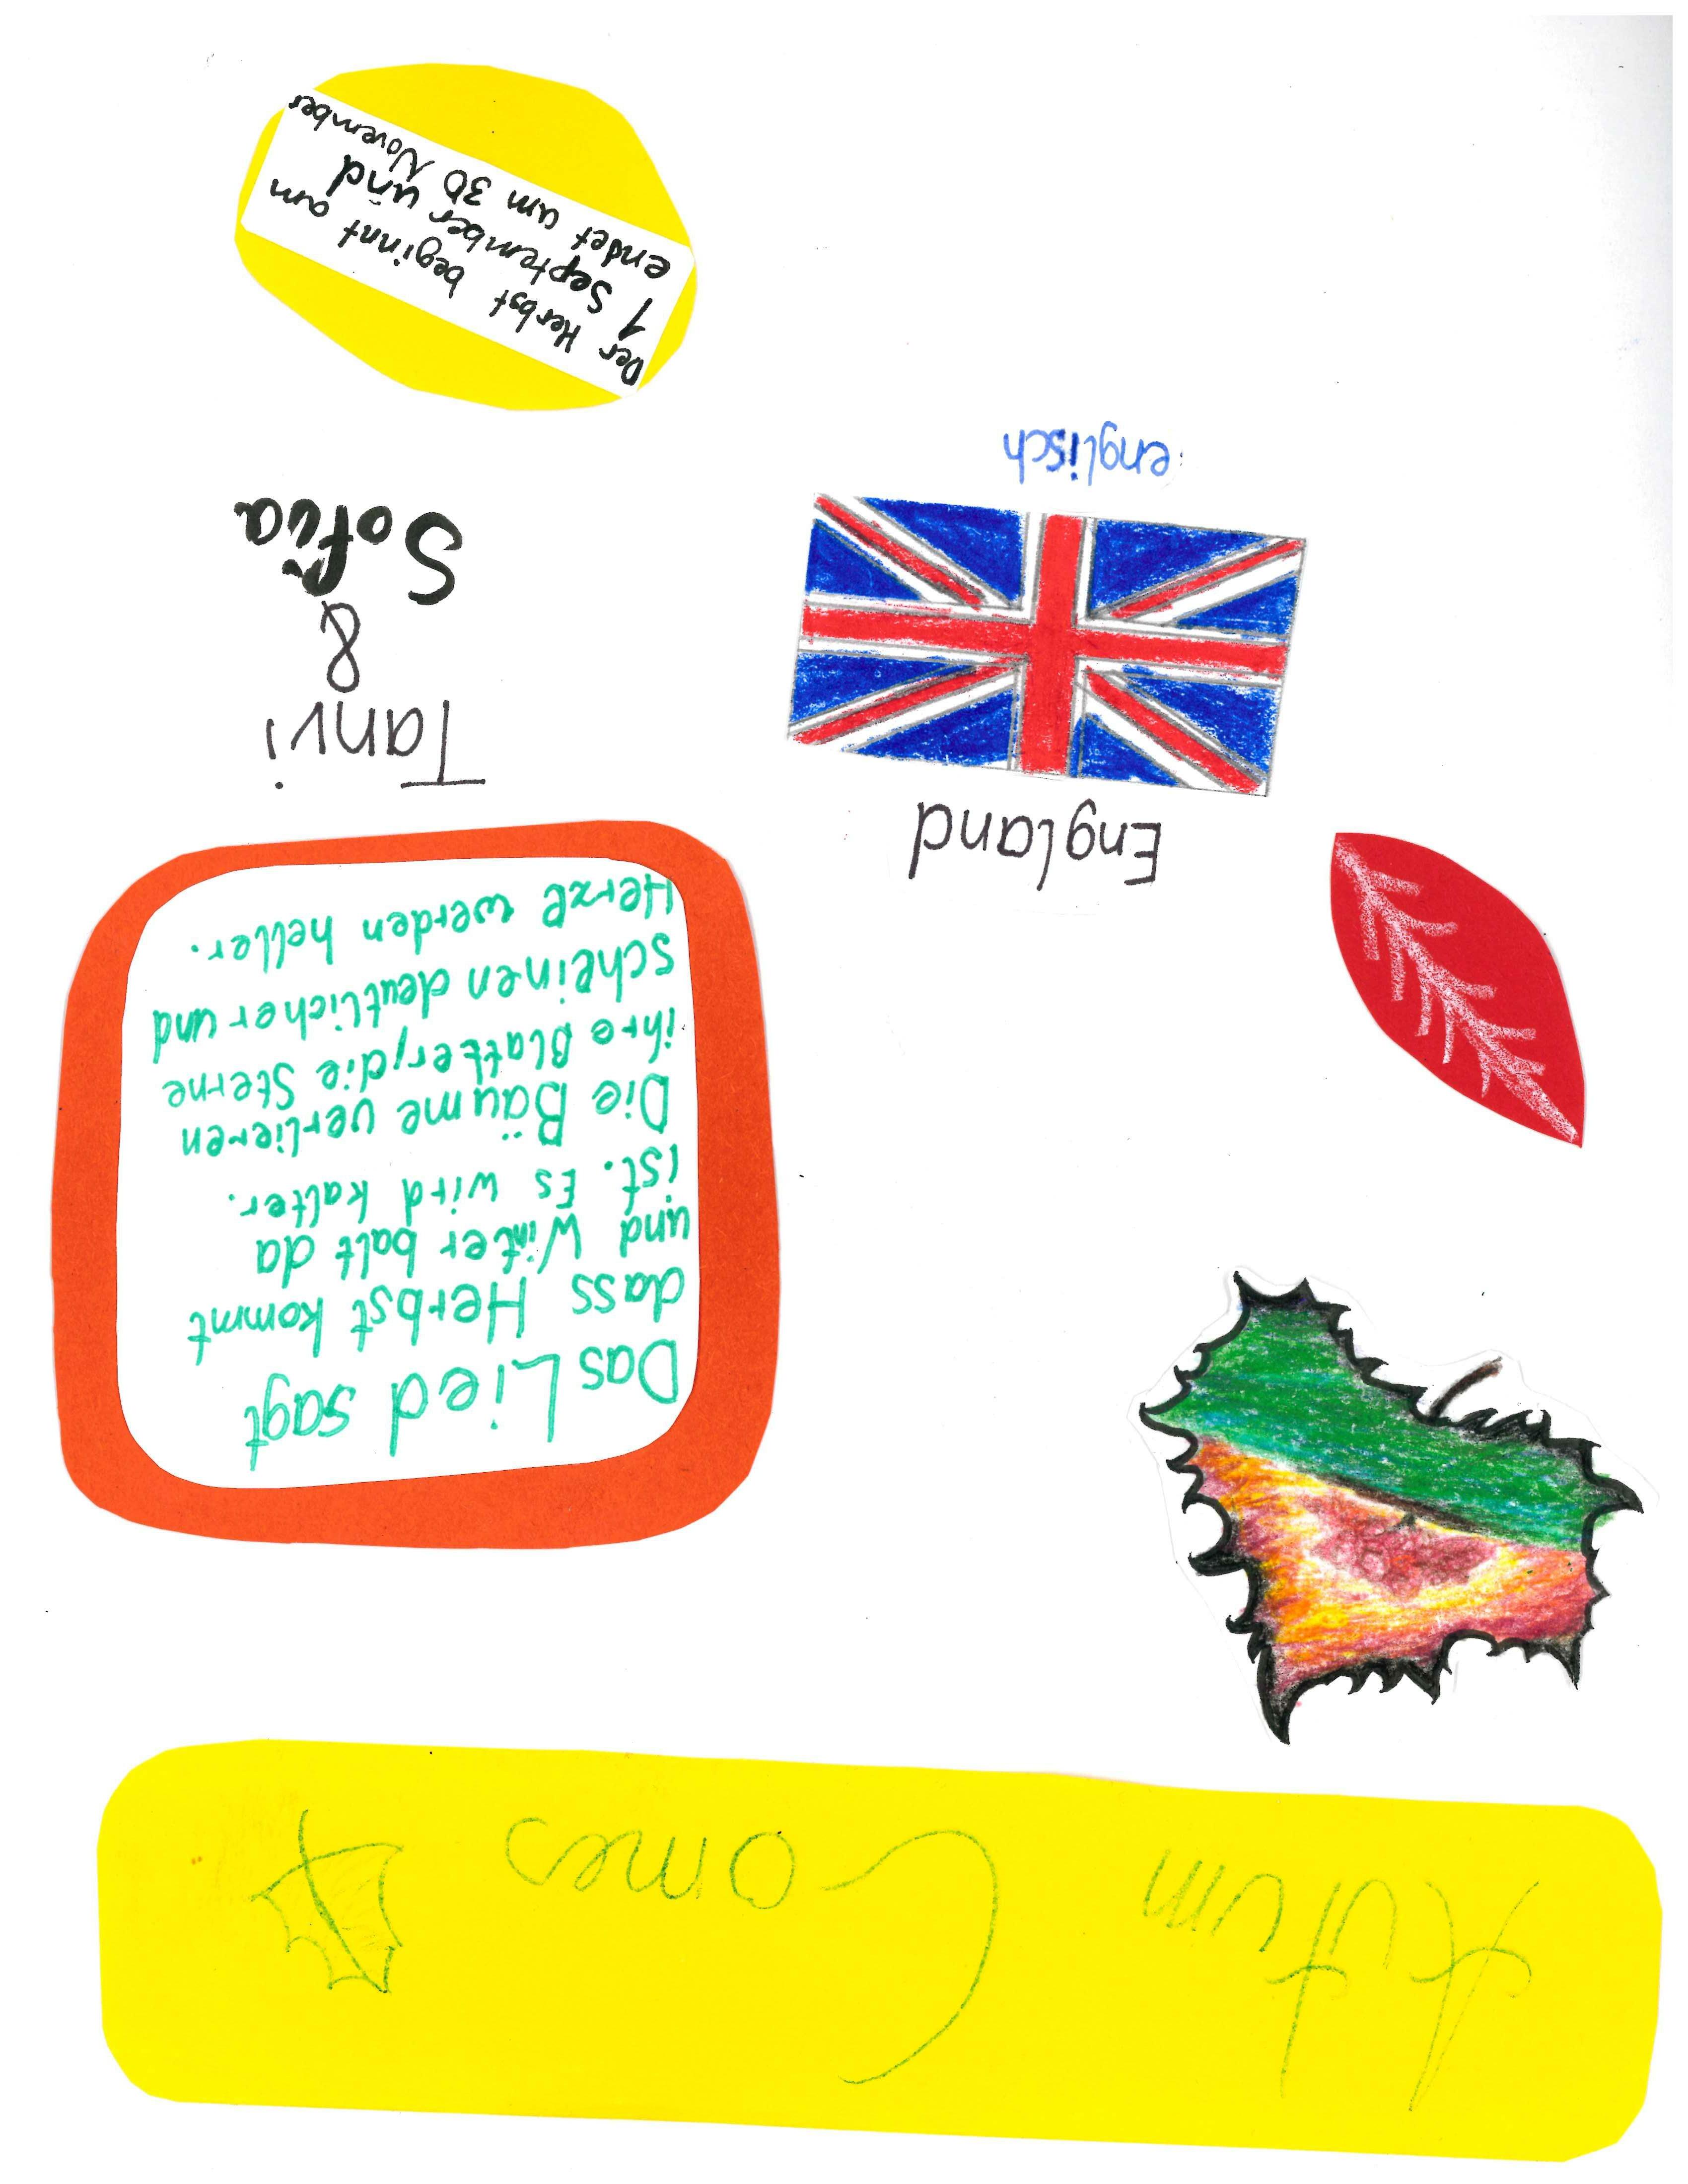 Autum Comes
England
englisch
Das Lied sagt
dass Herbst kommt
und Winter balt da
ist. Es wird kalter.
Die Bäume verlieren
ihre Blatter, die Sterne
scheinen deutlicher und
Herze werden heller.
Tanvi
&
Sofia
Der Herbst beginnt am
1 September und
endet am 30 November